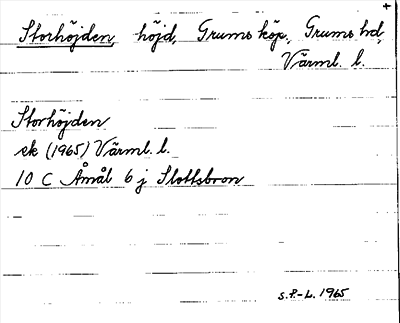 +
Storhöjden, höjd, Grums köp., Grums hd,
Värml. l.
Storhöjden
ek (1965) Värml. l.
10 C Åmål 6 j Slottsbron
S.P.-L. 1965